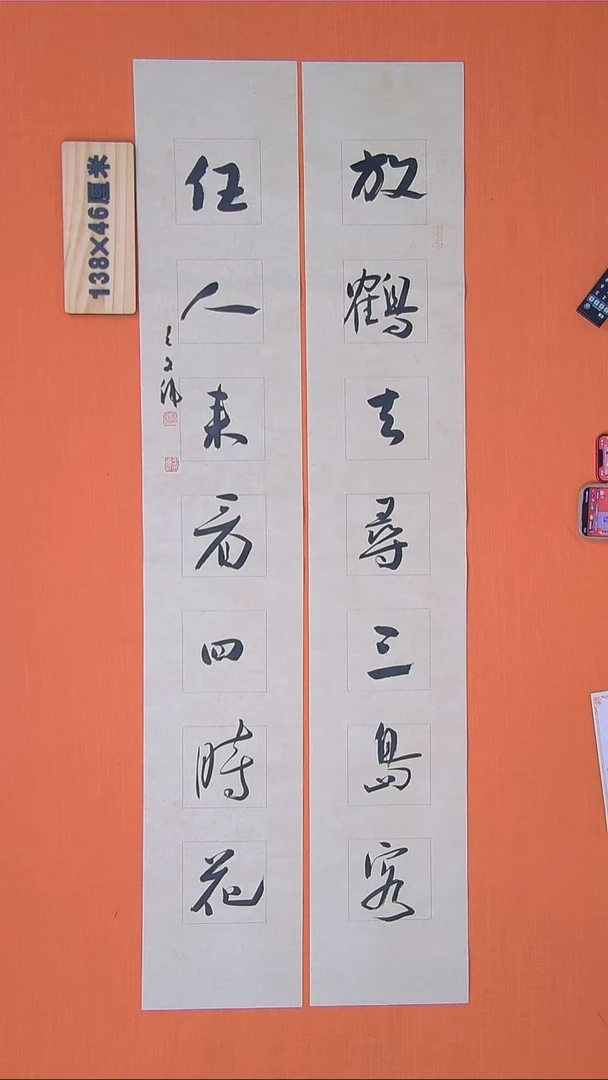 放鶴去尋三島客
任人来看四時花
138×46厘米